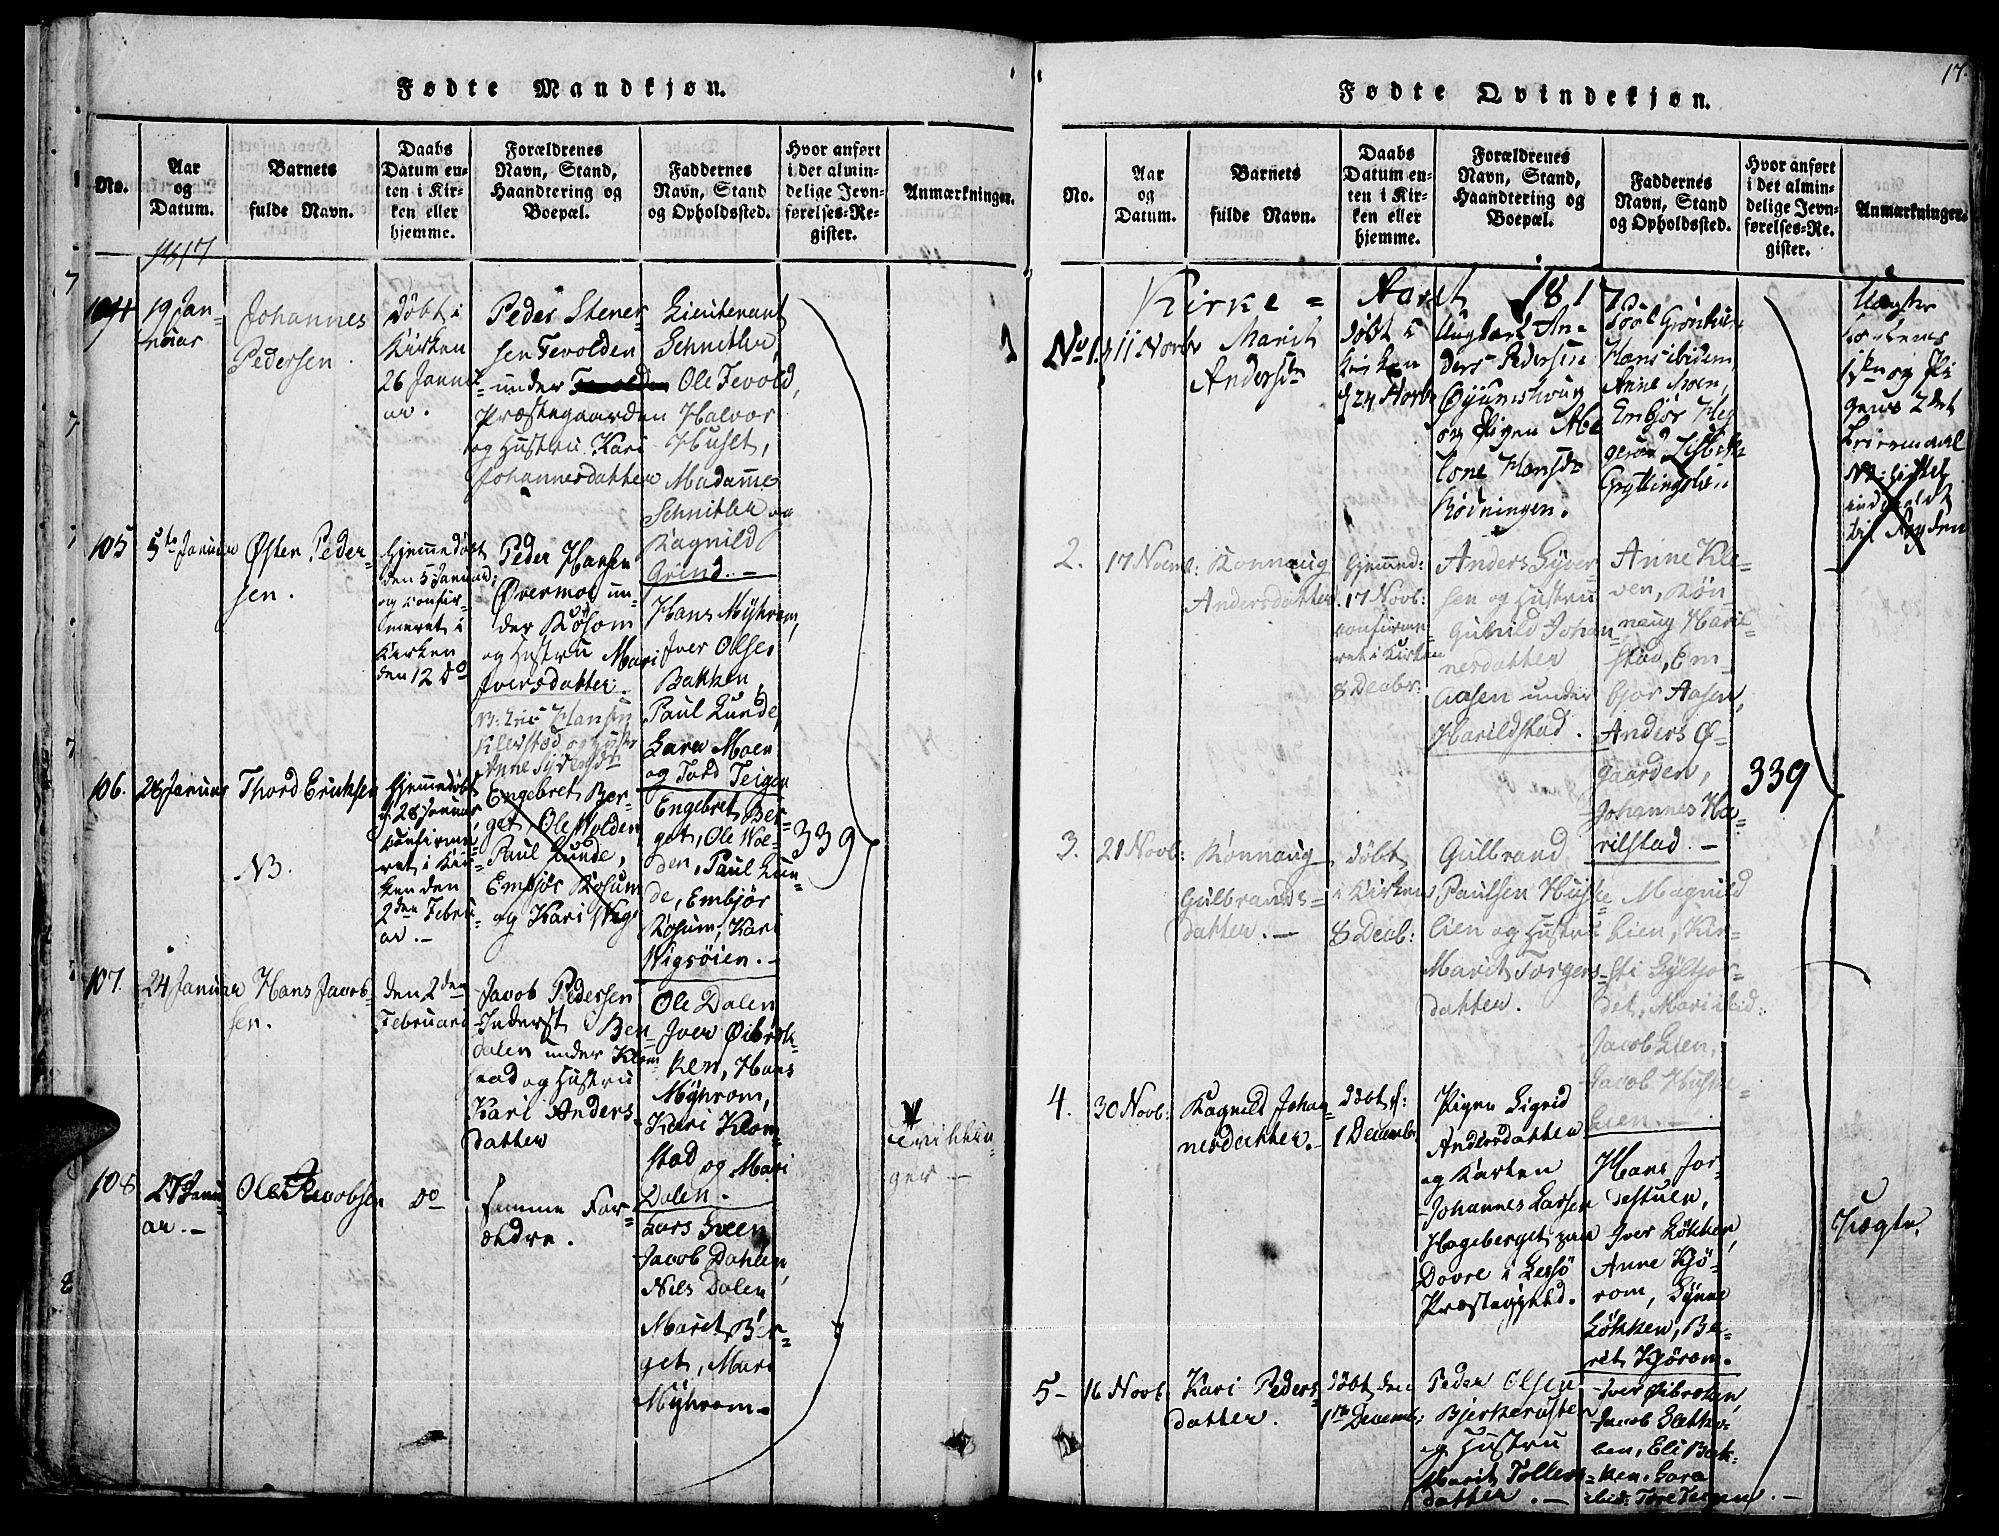 Fødte Mandkjøn.
No.
Aar
og
Datum.
Barnets
fulde Navn.
Daabs
Datum en-
ten i Kir-
ken eller
hjemme.
Forældrenes
Navn, Stand,
Haandtering og
Boepæl.
Faddernes
Navn, Stand
og Opholdssted.
Hvor anført
i det almin-
delige Jevn-
førelses-Re-
gister.
Anmærkninger.
1817
104
19 Jan-
nuar
Johannes
Pedersen.
døbt i
Kirken
26 Janu-
ar.
Peder Stener-
sen Tevolden
under
Præstegaarden
og Hustru Kari
Johannesdatter
Lieutenant
Schnitler,
Ole Tevold,
Halvor
Huset,
Madamme
Schnitler og
Ragnild
Grind. -
105
5te Januar
Østen Peder-
sen.
Hjemmedøbt
den 5 Januar,
og confir-
meret i
Kirken
den 12 do
Peder Hansen
Øvermoe un-
der Rosom
og Hustru Mari
Iversdatter.
Hans Myhrom,
Iver Olsen
Bakken,
Paul Lunde,
Moen
og Tord Teigen
106.
28 Januar
Thord Ericksen
NB.
Hjemmedøbt
d. 28 Januar,
confirme-
ret i Kir-
ken den
2den Febru-
ar. -
NB: Eric Hansen
Klevstad og Hustr
Anne
Engebret Ber-
get, Ole Wolden,
Paul Lunde,
Embjør Rosum
og Kari Wigs
Engebret Ber-
get, Ole Wol-
den, Paul Lun-
de, Embjør
Rosum, Kari
Wigsøien. -
339
107.
24 Januar
Hans Jacob-
sen.
den 2den
Februari
Jacob Pedersen
Inderst Ben-
dalen under Klom-
stad og Hustru
Kari Anders-
datter
Ole Dalen
Iver Øibrek-
ken, Hans
Myhrom,
Kari Klom-
stad og Mari
Dalen.
108
27 Janu-
ar. -
Ole Jacobsen
do
Samme For-
ældre.
Lars Sveen
Jacob Dahlen,
Nils Dalen
Marit Ber-
get, Mari
Myhrom.
Tvillin-
ger -
17.
Fødte Qvindekjøn.
No.
Aar
og
Datum.
Barnets
fulde Navn.
Daabs
Datum en-
ten i Kir-
ken eller
hjemme.
Forældrenes
Navn, Stand,
Haandtering og
Boepæl.
Faddernes
Navn, Stand
og Opholdssted.
Hvor anført
i det almin-
delige Jevn-
førelses-Re-
gister.
Anmærkninger.
Kirke = Aaret 1817
No 1
11 Novbr
Marit
Andersdr
døbt i
Kirken
d 24 Novb
Ungkarl An-
ders Pedersen
og Pigen Abe
lone Hansdr
Rødningen.
Hans ibidem,
Anne Moen,
Embjør
2det
Leiermaal
2.
17 Novemb:
Rønnaug
Andersdatter
Hjemmed:
17 Novb:
confirme-
ret i Kirken
8 Decbr:
Anders Syver-
sen og Hustru
Gunild Johan-
nesdatter
Aasen under
Harildstad.
Anne Kle-
ven, Røn-
naug Haril-
stad, Em-
bjør Aasen,
Anders Ø-
gaarden,
Johannes Ha-
rilstad. -
339
3.
21 Novb:
Rønnaug
Gulbrands-
datter. -
døbt
i Kirken
8 Decb:
Gulbrand
Paulsen Huske-
lien og Hustru
Marit Torgers-
datter.
Magnild
Lien, Kir-
sti Gyltjor-
det, Mari ibid:
Jacob Lien,
Jacob Huske-
lien. -
4.
30 Novb:
Ragnild Johan-
nesdatter. -
døbt d:
1 Decembr
Pigen Sigrid
Andersdatter
og Karlen
Johannes Larsen
Hageberget paa
Dovre i Lessø
Præstegield.
Hans Jor-
destuen,
Iver Løkken,
Anne Kjø-
rom, Synne
Løkken, Be-
rit Kjørom.
Uægte.
5 -
16 Novb:
Kari Peders-
datter.
døbt den
1ste Decemb:
Peder Olsen
Bjerkerusten
og Hustru
Marit Tollevs-
datter. -
Iver Øibrekken,
Jacob Slette-
ken, Eli Bak-
ken,
ibid: Tore Teigen. -